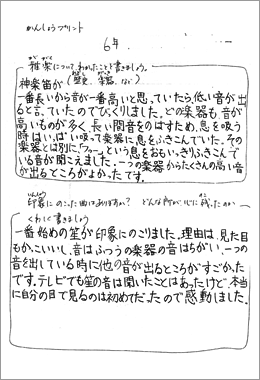 かんしょうプリント
6年
雅楽について、わかったことを書きましょう。
(歴史、楽器、など)
神楽笛が
一番長いから音が一番高いと思っていたら、低い音が出
ると言っていたのでびっくりしました。どの楽器も音が
高いものが多く、長い間音をのばすため、息を吸う
時はいっぱい吸って楽器に息をふきこんでいた。その
楽器とは別に「フゥー」という息をおもいっきりふきこんで
いる音が聞こえました。一つの楽器からたくさんの高い音
が出るところがよかったです。
印象にのこった曲はありますか? どんな所が心に残ったのか
くわしく書きましょう
一番始めの笙が印象にのこりました。理由は、見た目
もかっこいいし、音はふつうの楽器の音はちがい、一つの
音を出している時に他の音が出るところがすごかった
です。テレビでも笙の音は聞いたことはあったけど、本当
に自分の目で見るのは初めてだったので感動しました。